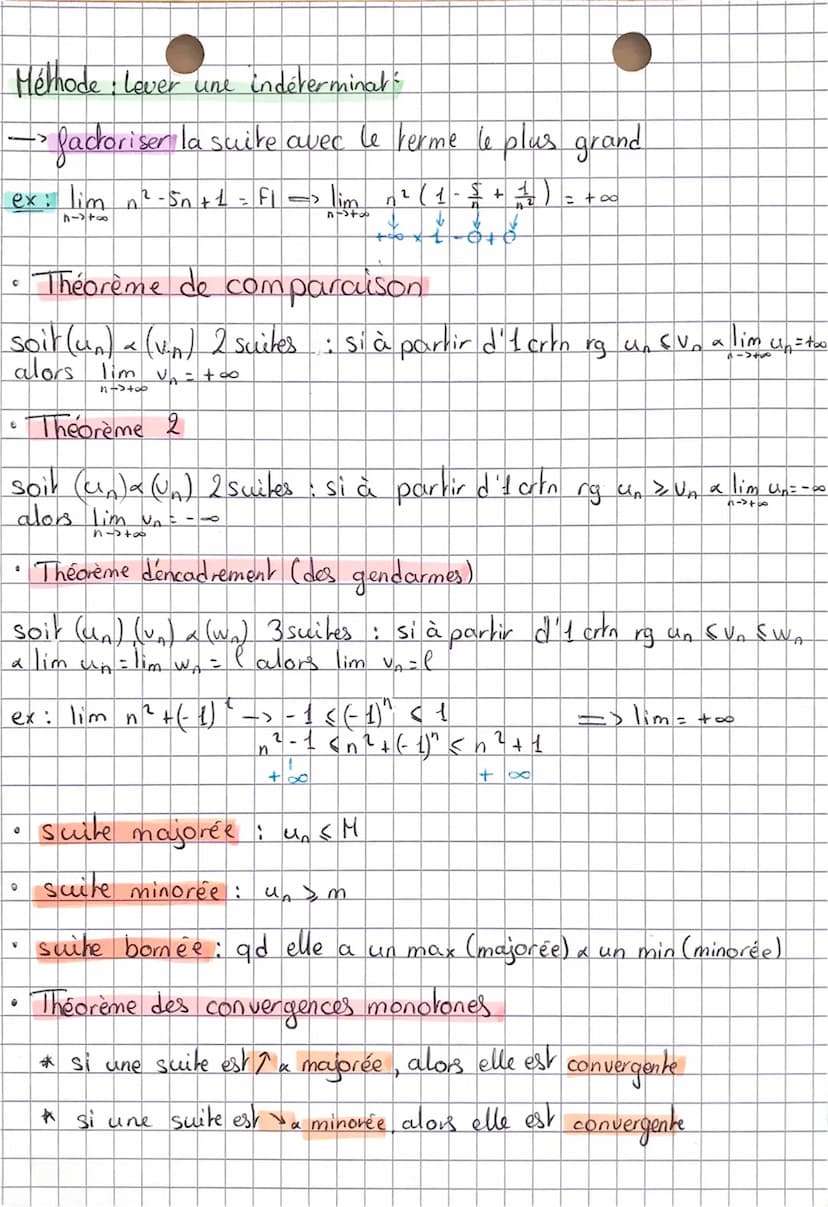 Méthode : lever une indéterminat°
-> factoriser la suite avec le terme le plus grand
ex : lim n² - 5n + 1 = FI => lim n² ( 1 - 5/n + 1/n² ) = +∞
n->+∞ n->+∞
+∞ x 1 - 0 + 0
• Théorème de comparaison
soit (un) & (vn) 2 suites : si à partir d'1 crtn rg un ≤ vn & lim un = +∞
n->+∞
alors lim vn = +∞
n->+∞
• Théorème 2
soit (un) & (vn) 2 suites : si à partir d'1 crtn rg un ≥ vn & lim un = -∞
n->+∞
alors lim vn = -∞
n->+∞
• Théorème d'encadrement (des gendarmes)
soit (un) (vn) & (wn) 3 suites : si à partir d'1 crtn rg un ≤ vn ≤ wn
& lim un = lim wn = l alors lim vn = l
ex : lim n² + (-1)^t -> -1 ≤ (-1)^n ≤ 1 => lim = +∞
n² - 1 ≤ n² + (-1)^n ≤ n² + 1
+∞ +∞
• suite majorée : un ≤ M
• suite minorée : un ≥ m
• suite bornée : qd elle a un max (majorée) & un min (minorée)
• Théorème des convergences monotones
* si une suite est ↗ & majorée, alors elle est convergente
* si une suite est ↘ & minorée, alors elle est convergente